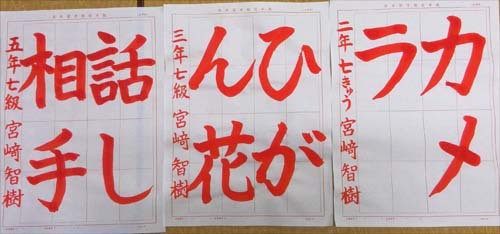 カメ
ラ
二年 七きゅう 宮﨑 智樹
ひが
ん花
三年 七級 宮﨑 智樹
話し
相手
五年 七級 宮﨑 智樹